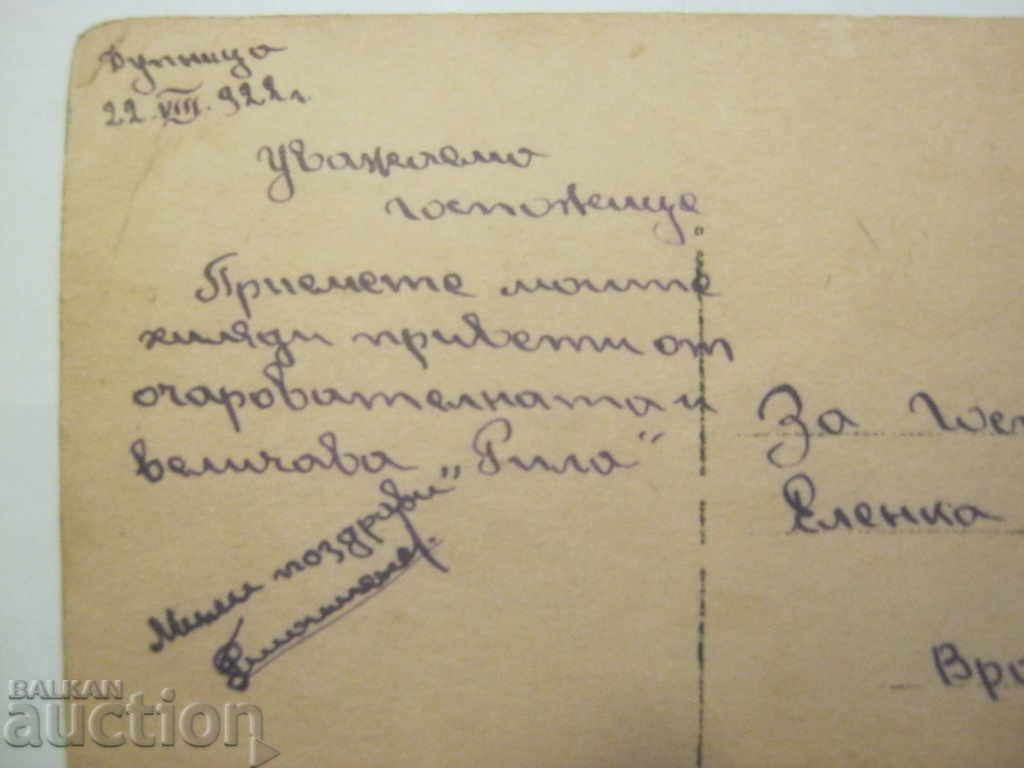 Дупница
22.VIII.922г.
Уважаемо
госпожице
Приемете моите
хиляди привети от
очарователната и
величава „Рила“
Мили поздрави
За Гос
Еленка
Вра
BALKAN
auction